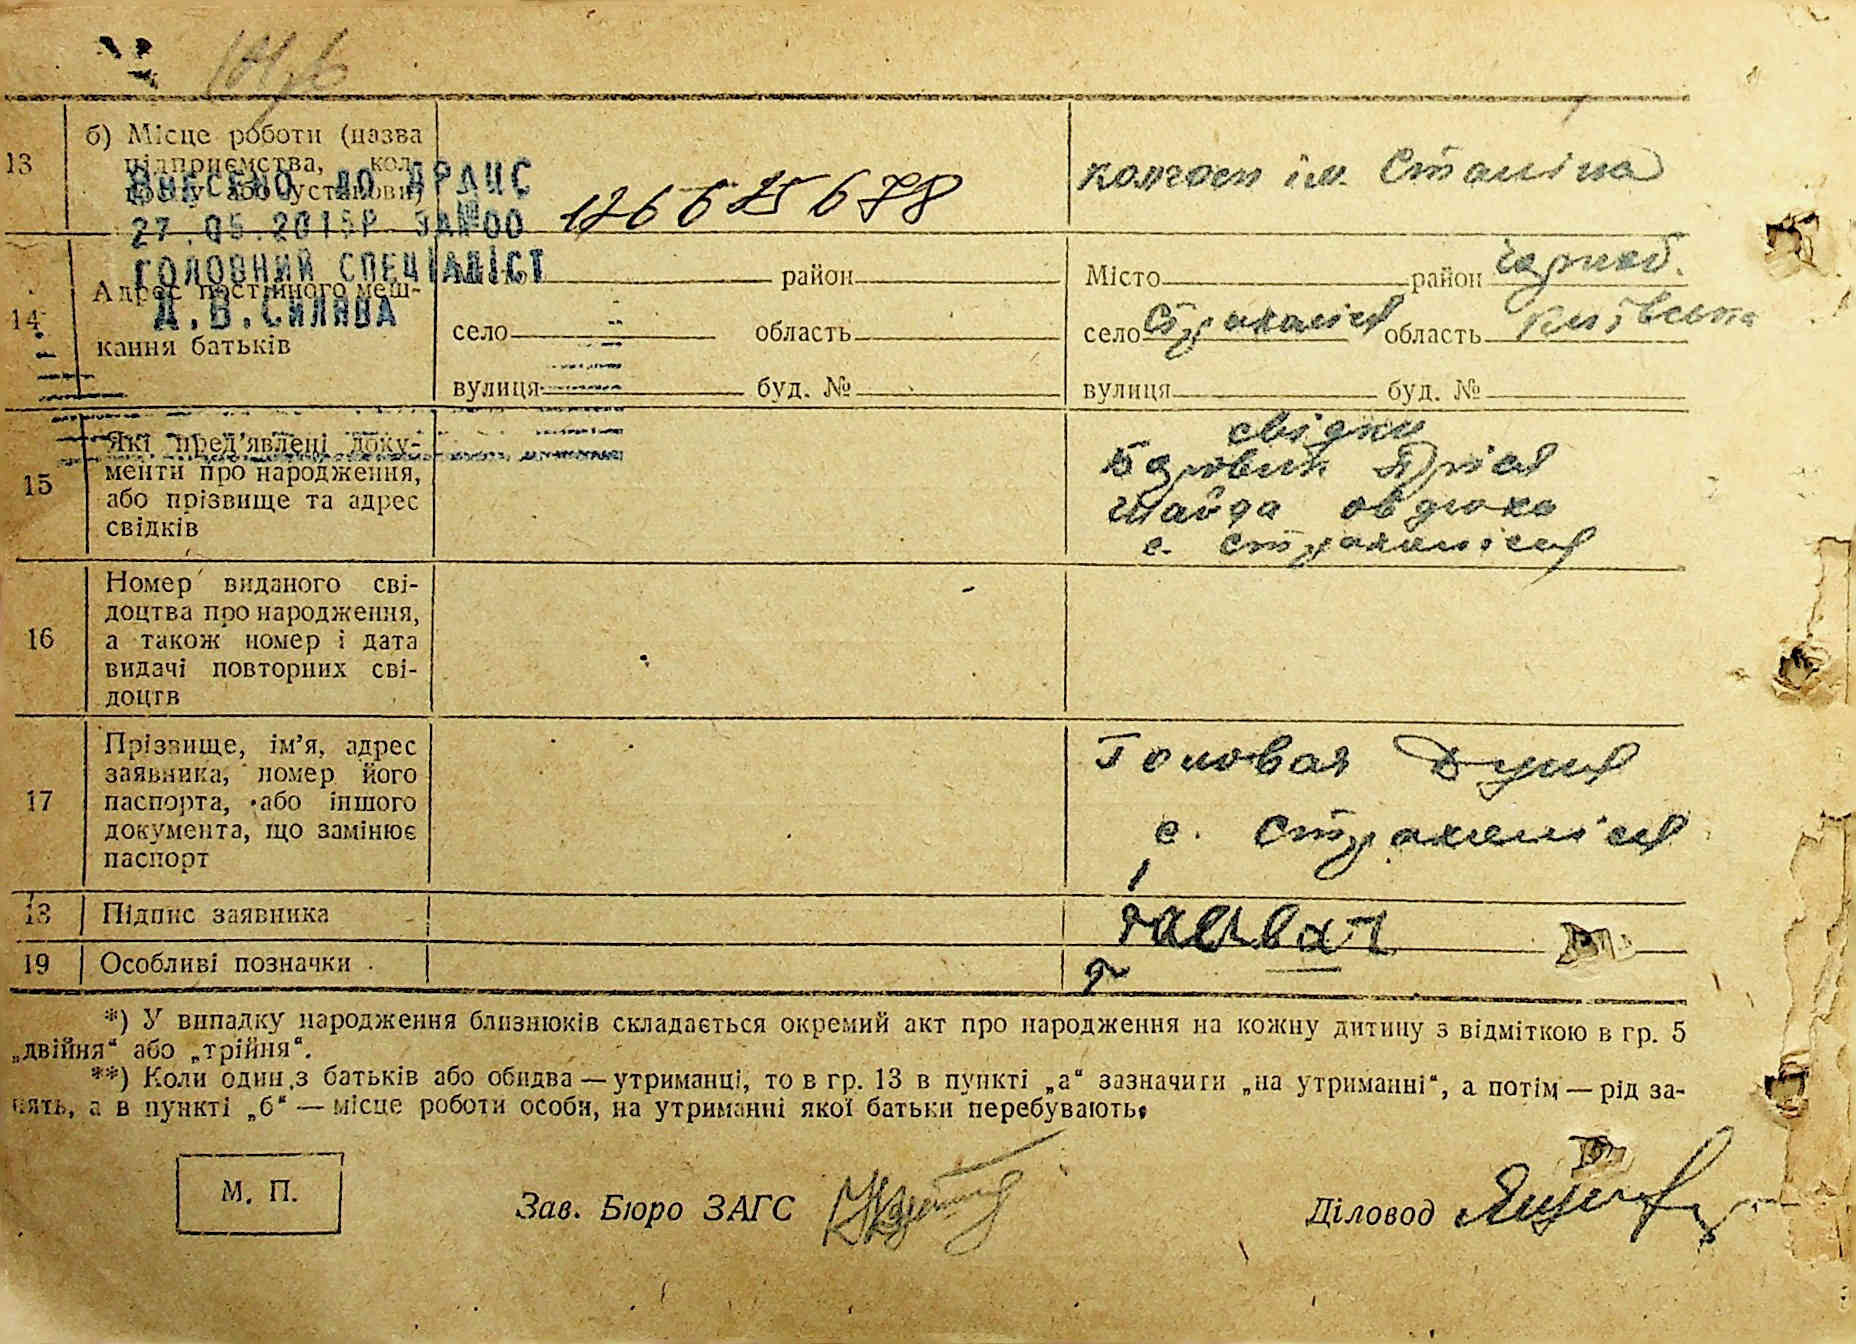 13
б) Місце роботи (назва
підприємства, кол-
госпу або установи)
ВНЕСЕНО ДО ДРАЦС
27.05.2015Р. ЗА№00
126625678
ГОЛОВНИЙ СПЕЦІАЛІСТ
колгосп ім. Сталіна
14
Адрес постійного меш-
кання батьків
район
село область
вулиця буд. №
Місто район Чорноб.
село Страхолісся область Київська
вулиця буд. №
15
Які пред'явлені доку-
менти про народження,
або прізвище та адрес
свідків
свідки
Шайда Овдюха
с. Страхолісся
16
Номер виданого сві-
доцтва про народження,
а також номер і дата
видачі повторних сві-
доцтв
17
Прізвище, ім'я, адрес
заявника, номер його
паспорта, або іншого
документа, що замінює
паспорт
Головая Дуня
с. Страхолісся
18
Підпис заявника
19
Особливі позначки
*) У випадку народження близнюків складається окремий акт про народження на кожну дитину з відміткою в гр. 5
„двійня“ або „трійня“.
**) Коли один з батьків або обидва — утриманці, то в гр. 13 в пункті „а“ зазначити „на утриманні“, а потім — рід за-
нять, а в пункті „б“ — місце роботи особи, на утриманні якої батьки перебувають.
М. П.
Зав. Бюро ЗАГС
Діловод